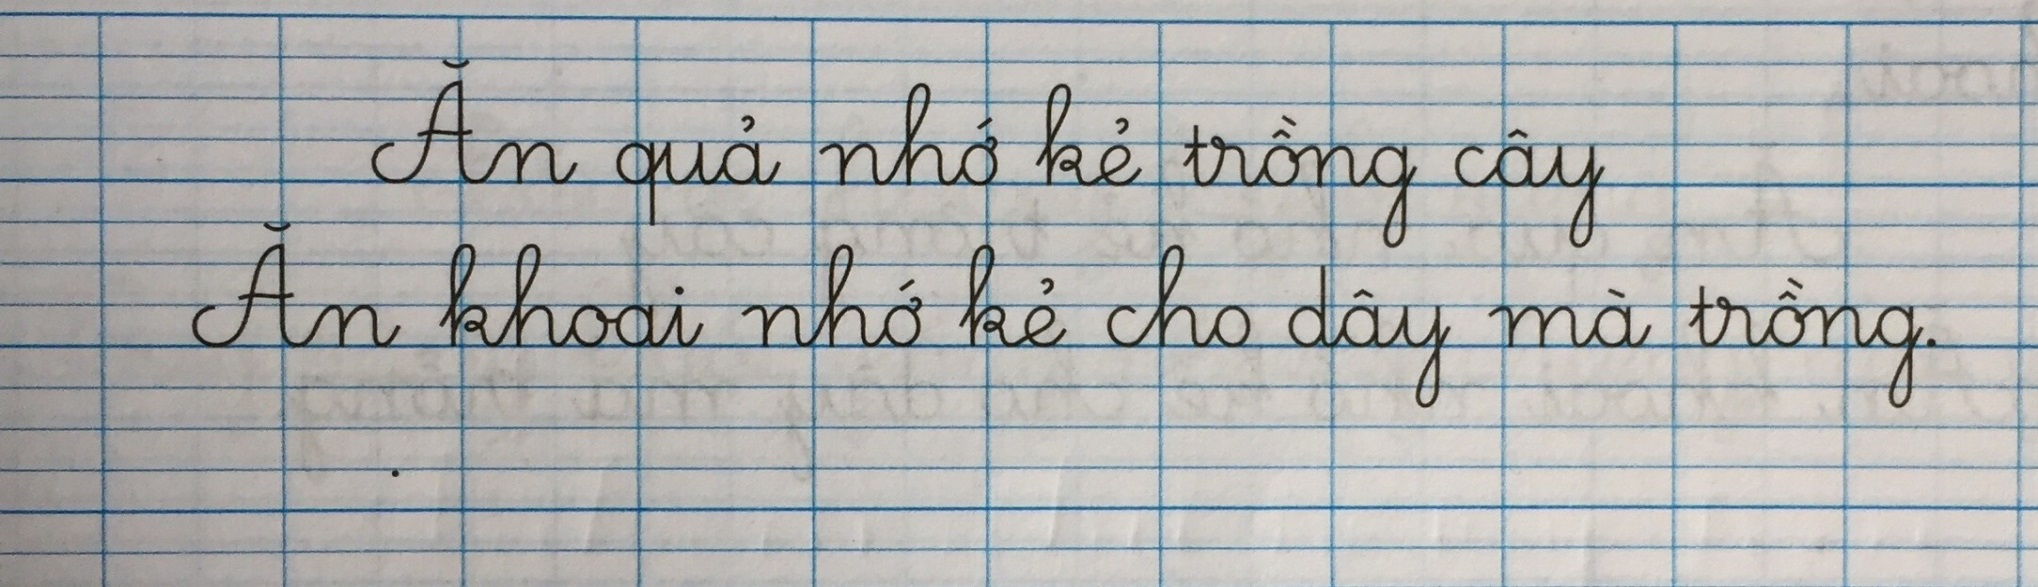 Ăn quả nhớ kẻ trồng cây
Ăn khoai nhớ kẻ cho dây mà trồng.